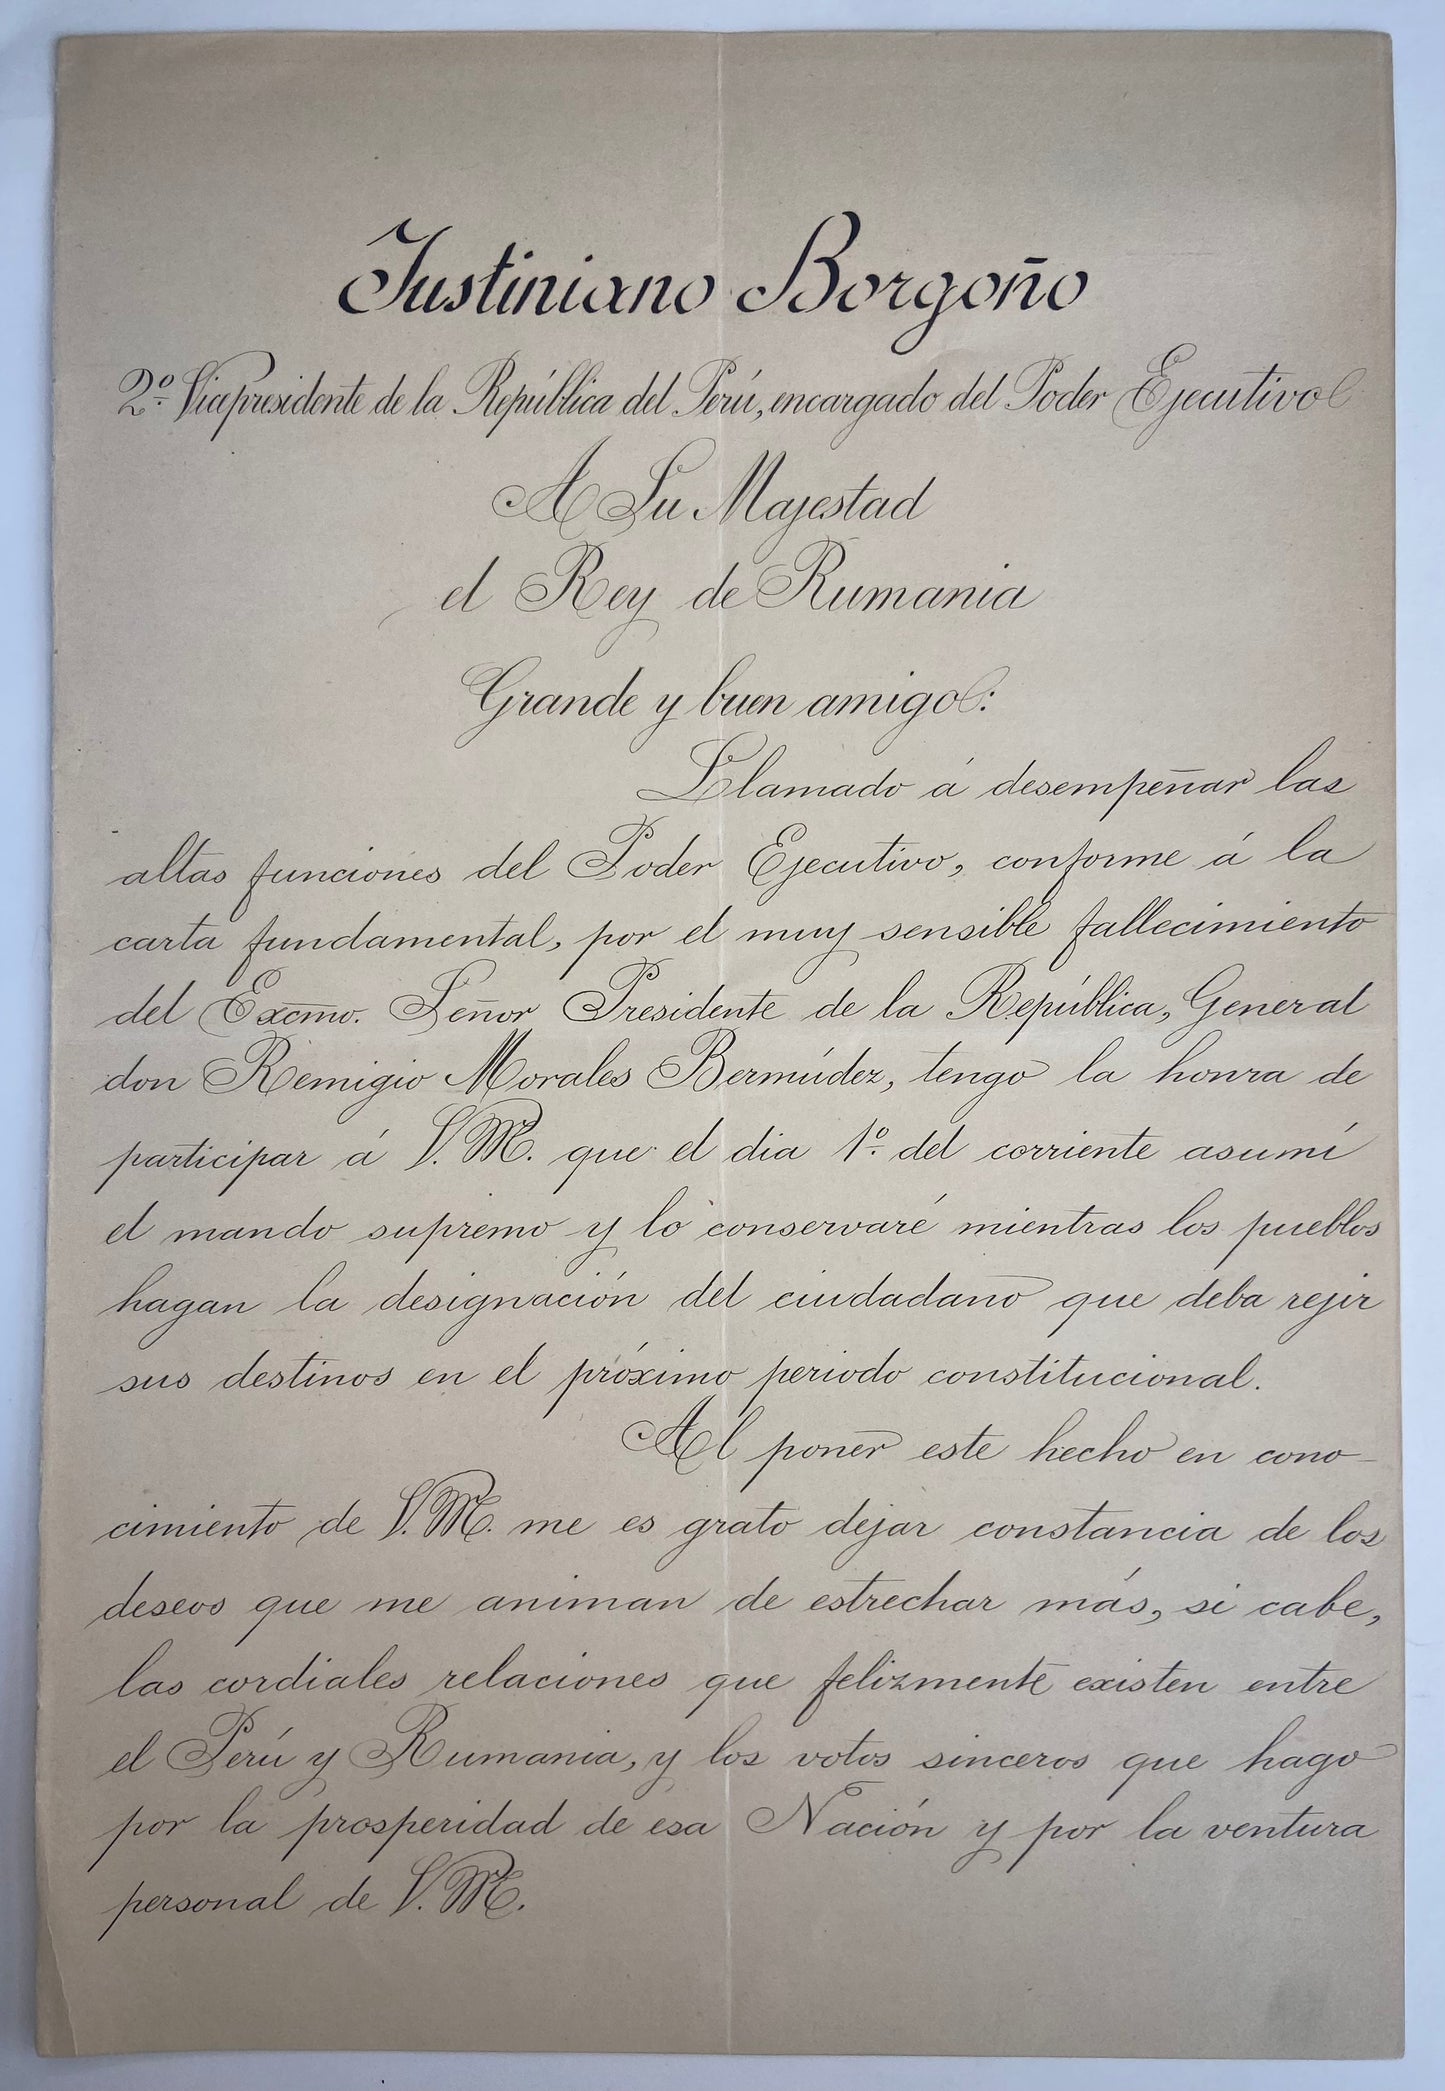 Justiniano Borgoño
2º Vicepresidente de la República del Perú, encargado del Poder Ejecutivo
A Su Majestad
el Rey de Rumania
Grande y buen amigo:
Llamado á desempeñar las
altas funciones del Poder Ejecutivo, conforme á la
carta fundamental, por el muy sensible fallecimiento
del Excmo. Señor Presidente de la República, General
don Remigio Morales Bermúdez, tengo la honra de
participar á V. M. que el dia 1º del corriente asumí
el mando supremo y lo conservaré mientras los pueblos
hagan la designación del ciudadano que deba rejir
sus destinos en el próximo periodo constitucional.
Al poner este hecho en cono-
cimiento de V. M. me es grato dejar constancia de los
deseos que me animan de estrechar más, si cabe,
las cordiales relaciones que felizmente existen entre
el Perú y Rumania, y los votos sinceros que hago
por la prosperidad de esa Nación y por la ventura
personal de V. M.